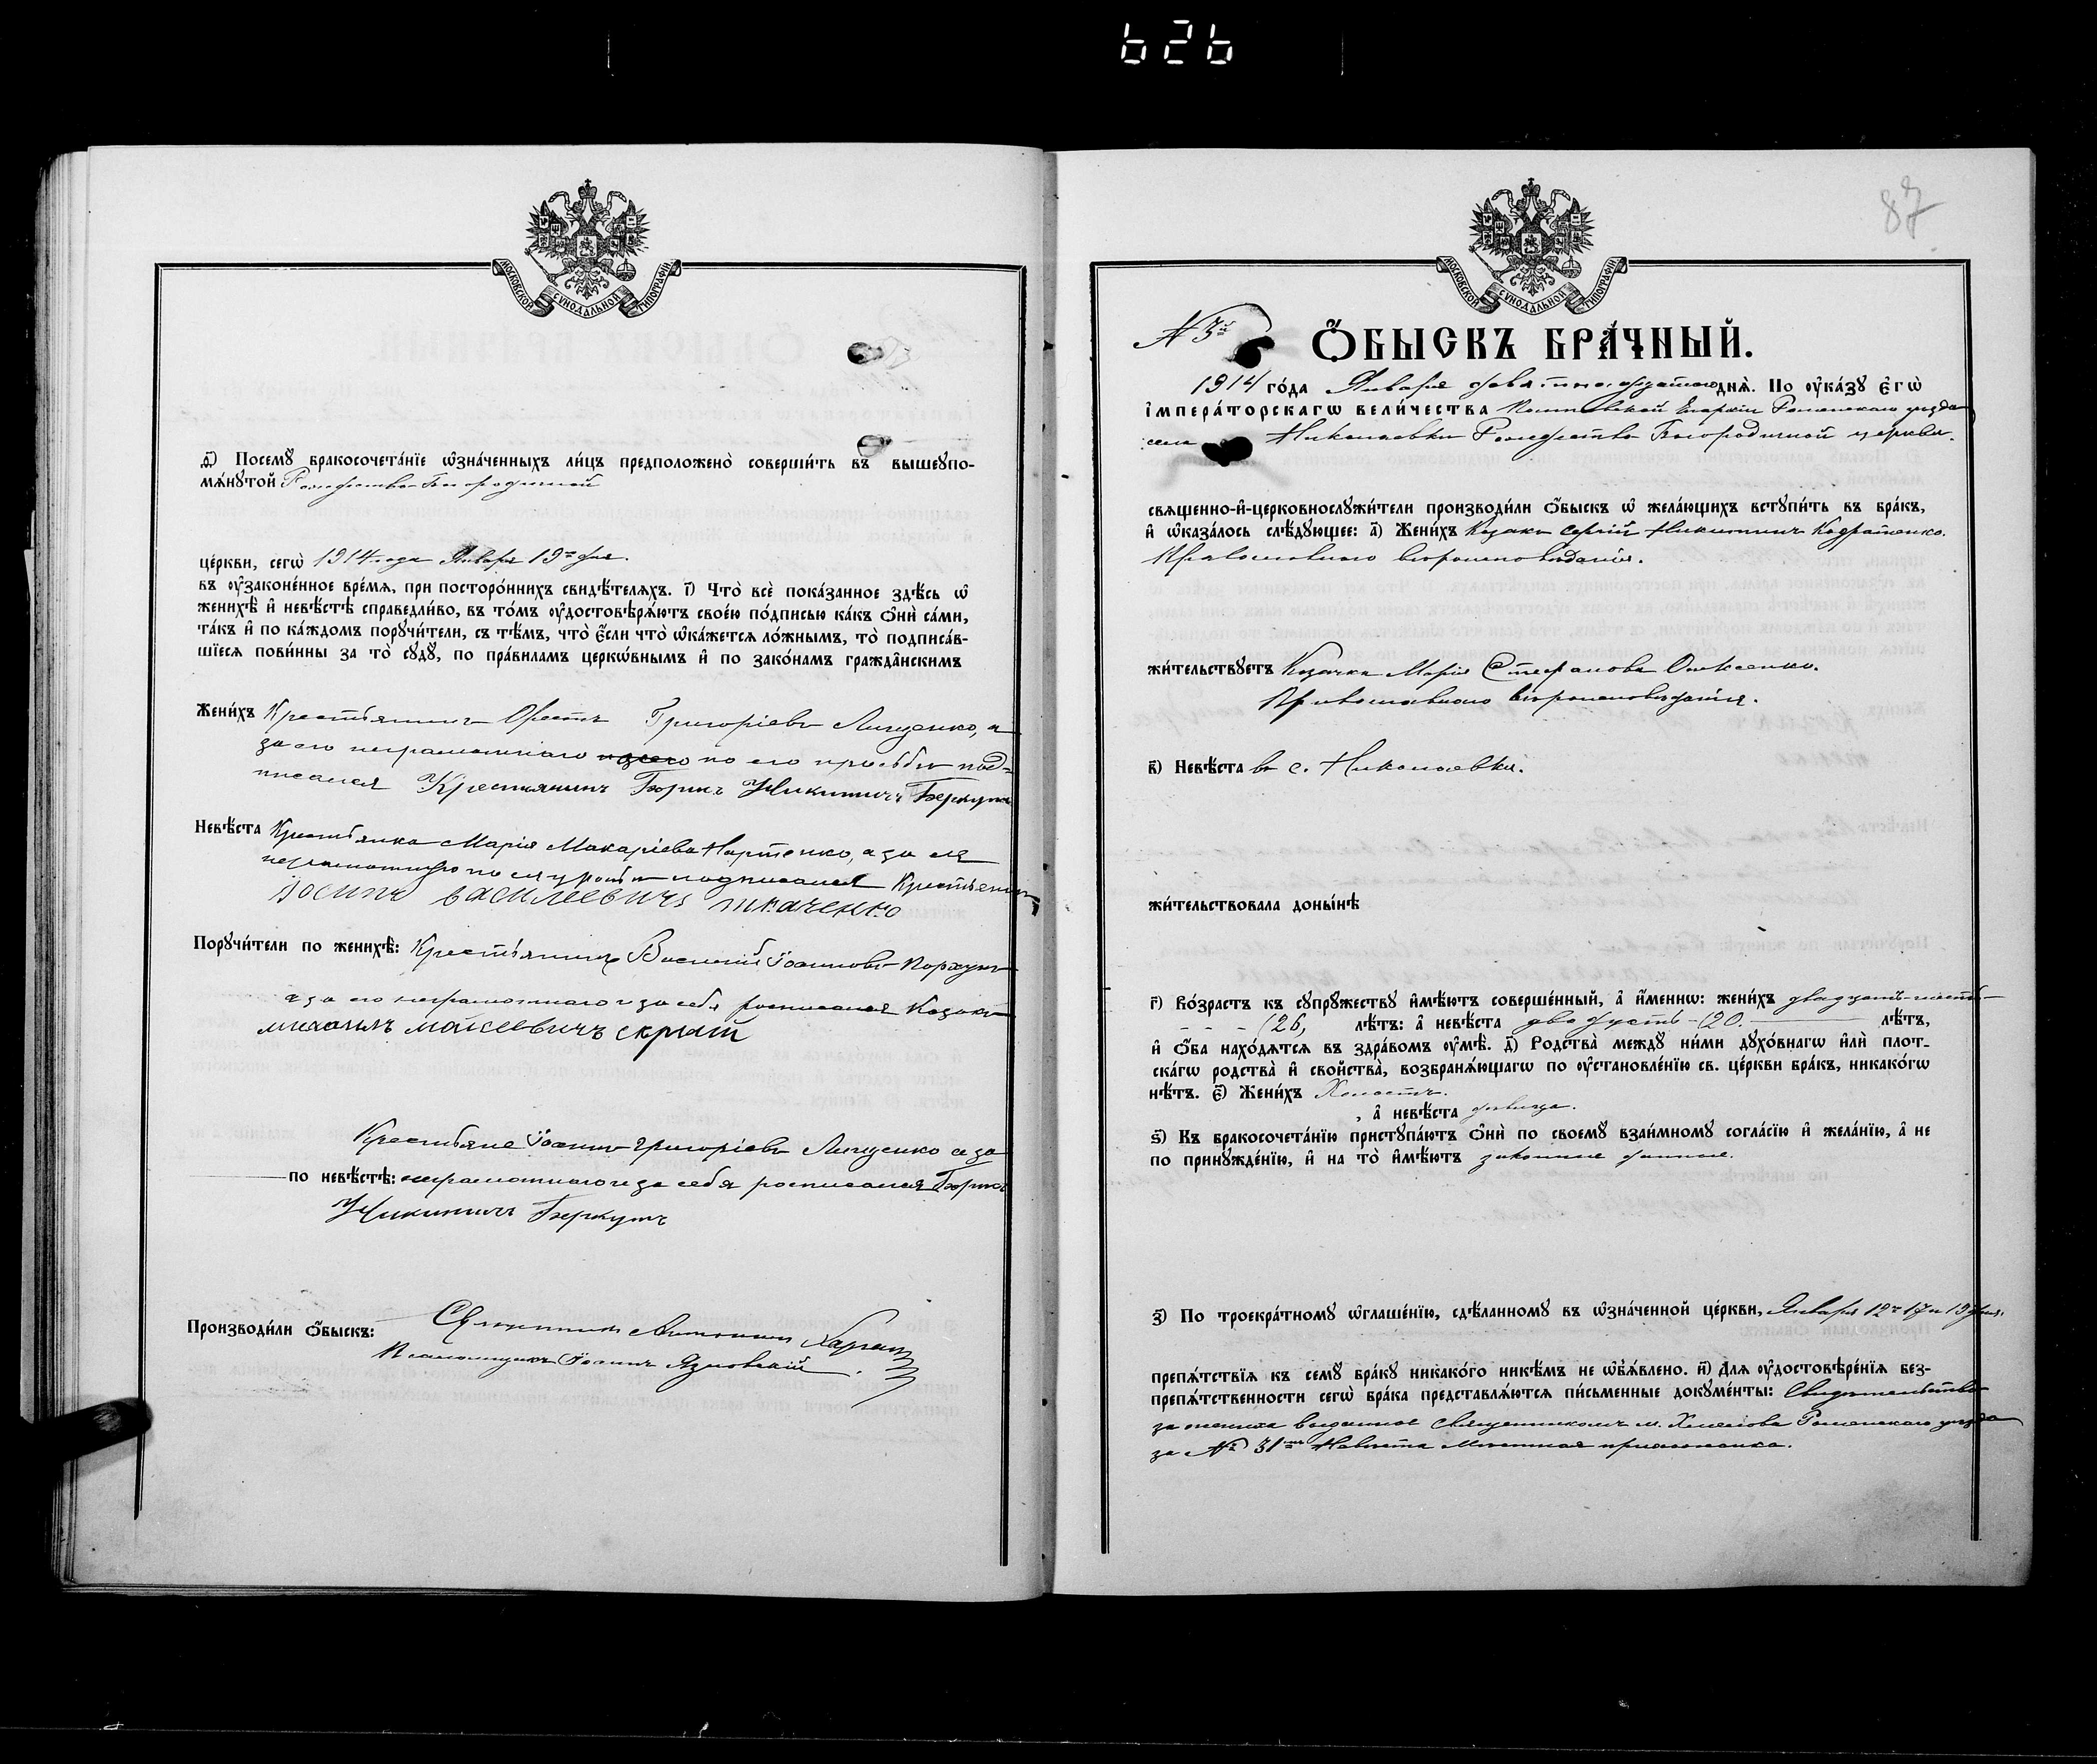 626
МОСКОВСКОЙ СУНОДАЛЬНОЙ ТИПОГРАФІИ
д҃) Посемꙋ бракосочета́нїе ѡ҆зна́ченныхъ ли́цъ предположено̀ соверши́ть въ вышеꙋпо-
мѧ́нꙋтой Рождество-Богородичной
це́ркви, сегѡ̀ 1914 года Января 19го дня.
въ оу҆законе́нное вре́мѧ, при посторо́ннихъ свидѣ́телѧхъ. і҃) Что̀ всѐ пока́занное здѣ́сь ѡ҆
женихѣ̀ и҆ невѣ́стѣ справедли́во, въ то́мъ оу҆достовѣрѧ́ютъ свое́ю по́дписью ка́къ ѻ҆нѝ са́ми,
та́къ и҆ по ка́ждомъ порꙋчи́тели, съ тѣ́мъ, что̀ є҆́сли что̀ ѡ҆ка́жетсѧ ло́жнымъ, то̀ подписа́в-
шїесѧ пови́нны за то̀ сꙋдꙋ̀, по пра́виламъ церкѡ́внымъ и҆ по зако́намъ гражда̑нскимъ
Жени́хъ Крестьянинъ Орестъ Григоріевъ Лищенко, а
за его неграмотнаго по его просьбѣ под=
писался Крестянинъ Никитичъ Беркутъ
Невѣ́ста Крестьянка Марія Макаріева, а за ея
подписался Крестьянинъ
Василеевичъ ткаченко
Порꙋчи́тели по женихѣ̀: Крестьянинъ Василій Іоанновъ
а за его неграмотнаго и за себя росписался Козакъ
михаилъ моисеевичъ
Крестьяне Іоаннъ Григоріевъ Лищенко а за
по невѣ́стѣ: неграмотнаго и за себя росписался
Никитичъ Беркутъ
Производи́ли ѻ҆́быскъ: Священникъ
Псаломщикъ Іоаннъ Язловскій
87
МОСКОВСКОЙ СУНОДАЛЬНОЙ ТИПОГРАФІИ
N 3й
Ѻ҆́БЫСКЪ БРА́ЧНЫЙ.
1914 го́да Января девятнадцатаго днѧ̀. По оу҆ка́зꙋ є҆гѡ̀
і҆мпера́торскагѡ вели́чества Полтавской Епархіи Роменскаго уѣзда
села Николаевки Рождество Богородичной церкви.
свѧщенно-и҆-церковнослꙋжи́тели производи́ли ѻ҆́быскъ ѡ҆ жела́ющихъ встꙋпи́ть въ бра́къ,
и҆ ѡ҆каза́лось слѣ́дꙋющее: а҃) Жени́хъ Козакъ Сергій Никитинъ Кодратенко.
Православнаго вѣроисповѣданія.
жи́тельствꙋетъ Козачка Марія Стефанова Олексенко.
Православнаго вѣроисповѣданія.
в҃) Невѣ́ста въ с. Николаевки.
жи́тельствовала доны́нѣ
г҃) Во́зрастъ къ сꙋпрꙋ́жествꙋ и҆мѣ́ютъ соверше́нный, а҆ и҆́меннѡ: жени́хъ двадцать-шесть-
- - - (26, лѣ́тъ: а҆ невѣ́ста двадцать-(20. лѣ́тъ,
и҆ ѻ҆́ба нахо́дѧтсѧ въ здра́вомъ оу҆мѣ̀. д҃) Родства̀ междꙋ̀ ни́ми дꙋхо́внагѡ и҆лѝ плот-
ска́гѡ родства̀ и҆ свойства̀, возбранѧ́ющагѡ по оу҆становле́нїю св. це́ркви бра́къ, никако́гѡ
нѣ́тъ. є҃) Жени́хъ Холостъ.
, а҆ невѣ́ста дѣвица.
ѕ҃) Къ бракосочета́нїю пристꙋпа́ютъ ѻ҆нѝ по своемꙋ̀ взаи́мномꙋ согла́сїю и҆ жела́нїю, а҆ не
по принꙋжде́нїю, и҆ на то̀ и҆мѣ́ютъ законные данные.
з҃) По троекра́тномꙋ ѡ҆глаше́нїю, сдѣ́ланномꙋ въ ѡ҆зна́ченной це́ркви, Января 12го 17 и 19 дня.
препѧ́тствїѧ къ семꙋ̀ бра́кꙋ никако́гѡ никѣ́мъ не ѡ҆б̾ѧ́влено. и҃) Длѧ оу҆достовѣре́нїѧ без-
препѧ́тственности сегѡ̀ бра́ка представлѧ́ютсѧ пи́сьменные докꙋме́нты: Свидѣтельство
за жениха выданное священникомъ м. Хмелова Роменскаго уѣзда
за № 31мъ Невѣста Мѣстная прихожанка.